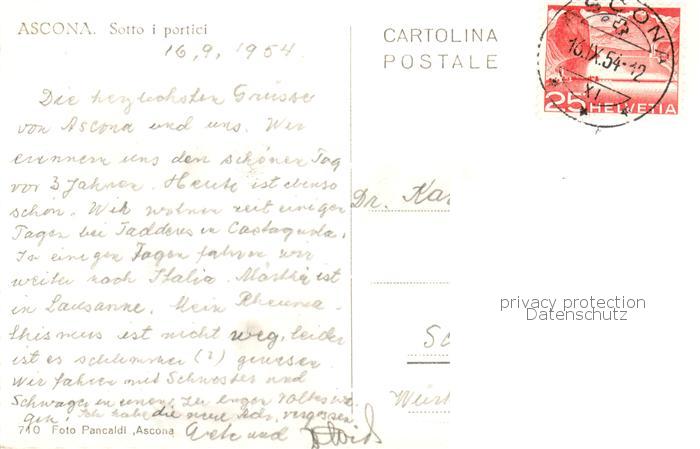 ASCONA. Sotto i portici
16, 9, 1954
Die herzlichsten Grüsse
von Ascona und uns. Wir
erinnern uns den schönen Tag
vor 3 Jahren. Heute ist ebenso
schön. Wir wohnen seit einigen
Tagen bei Tadderes in Castagnola.
In einigen Tagen fahren wir
weiter nach Italia. Martha ist
in Lausanne. Mein Rheuma-
thismus ist nicht weg, leider
ist es schlimmer (?) gewesen
Wir fahren mit Schwester und
Schwager in einem
Ich habe die neue Adr. vergessen
710 Foto Pancaldi, Ascona
und
CARTOLINA
POSTALE
ASCONA
16.IX.54-12
XI
25 HELVETIA
Dr. Kar
Sc
Würt
privacy protection
Datenschutz